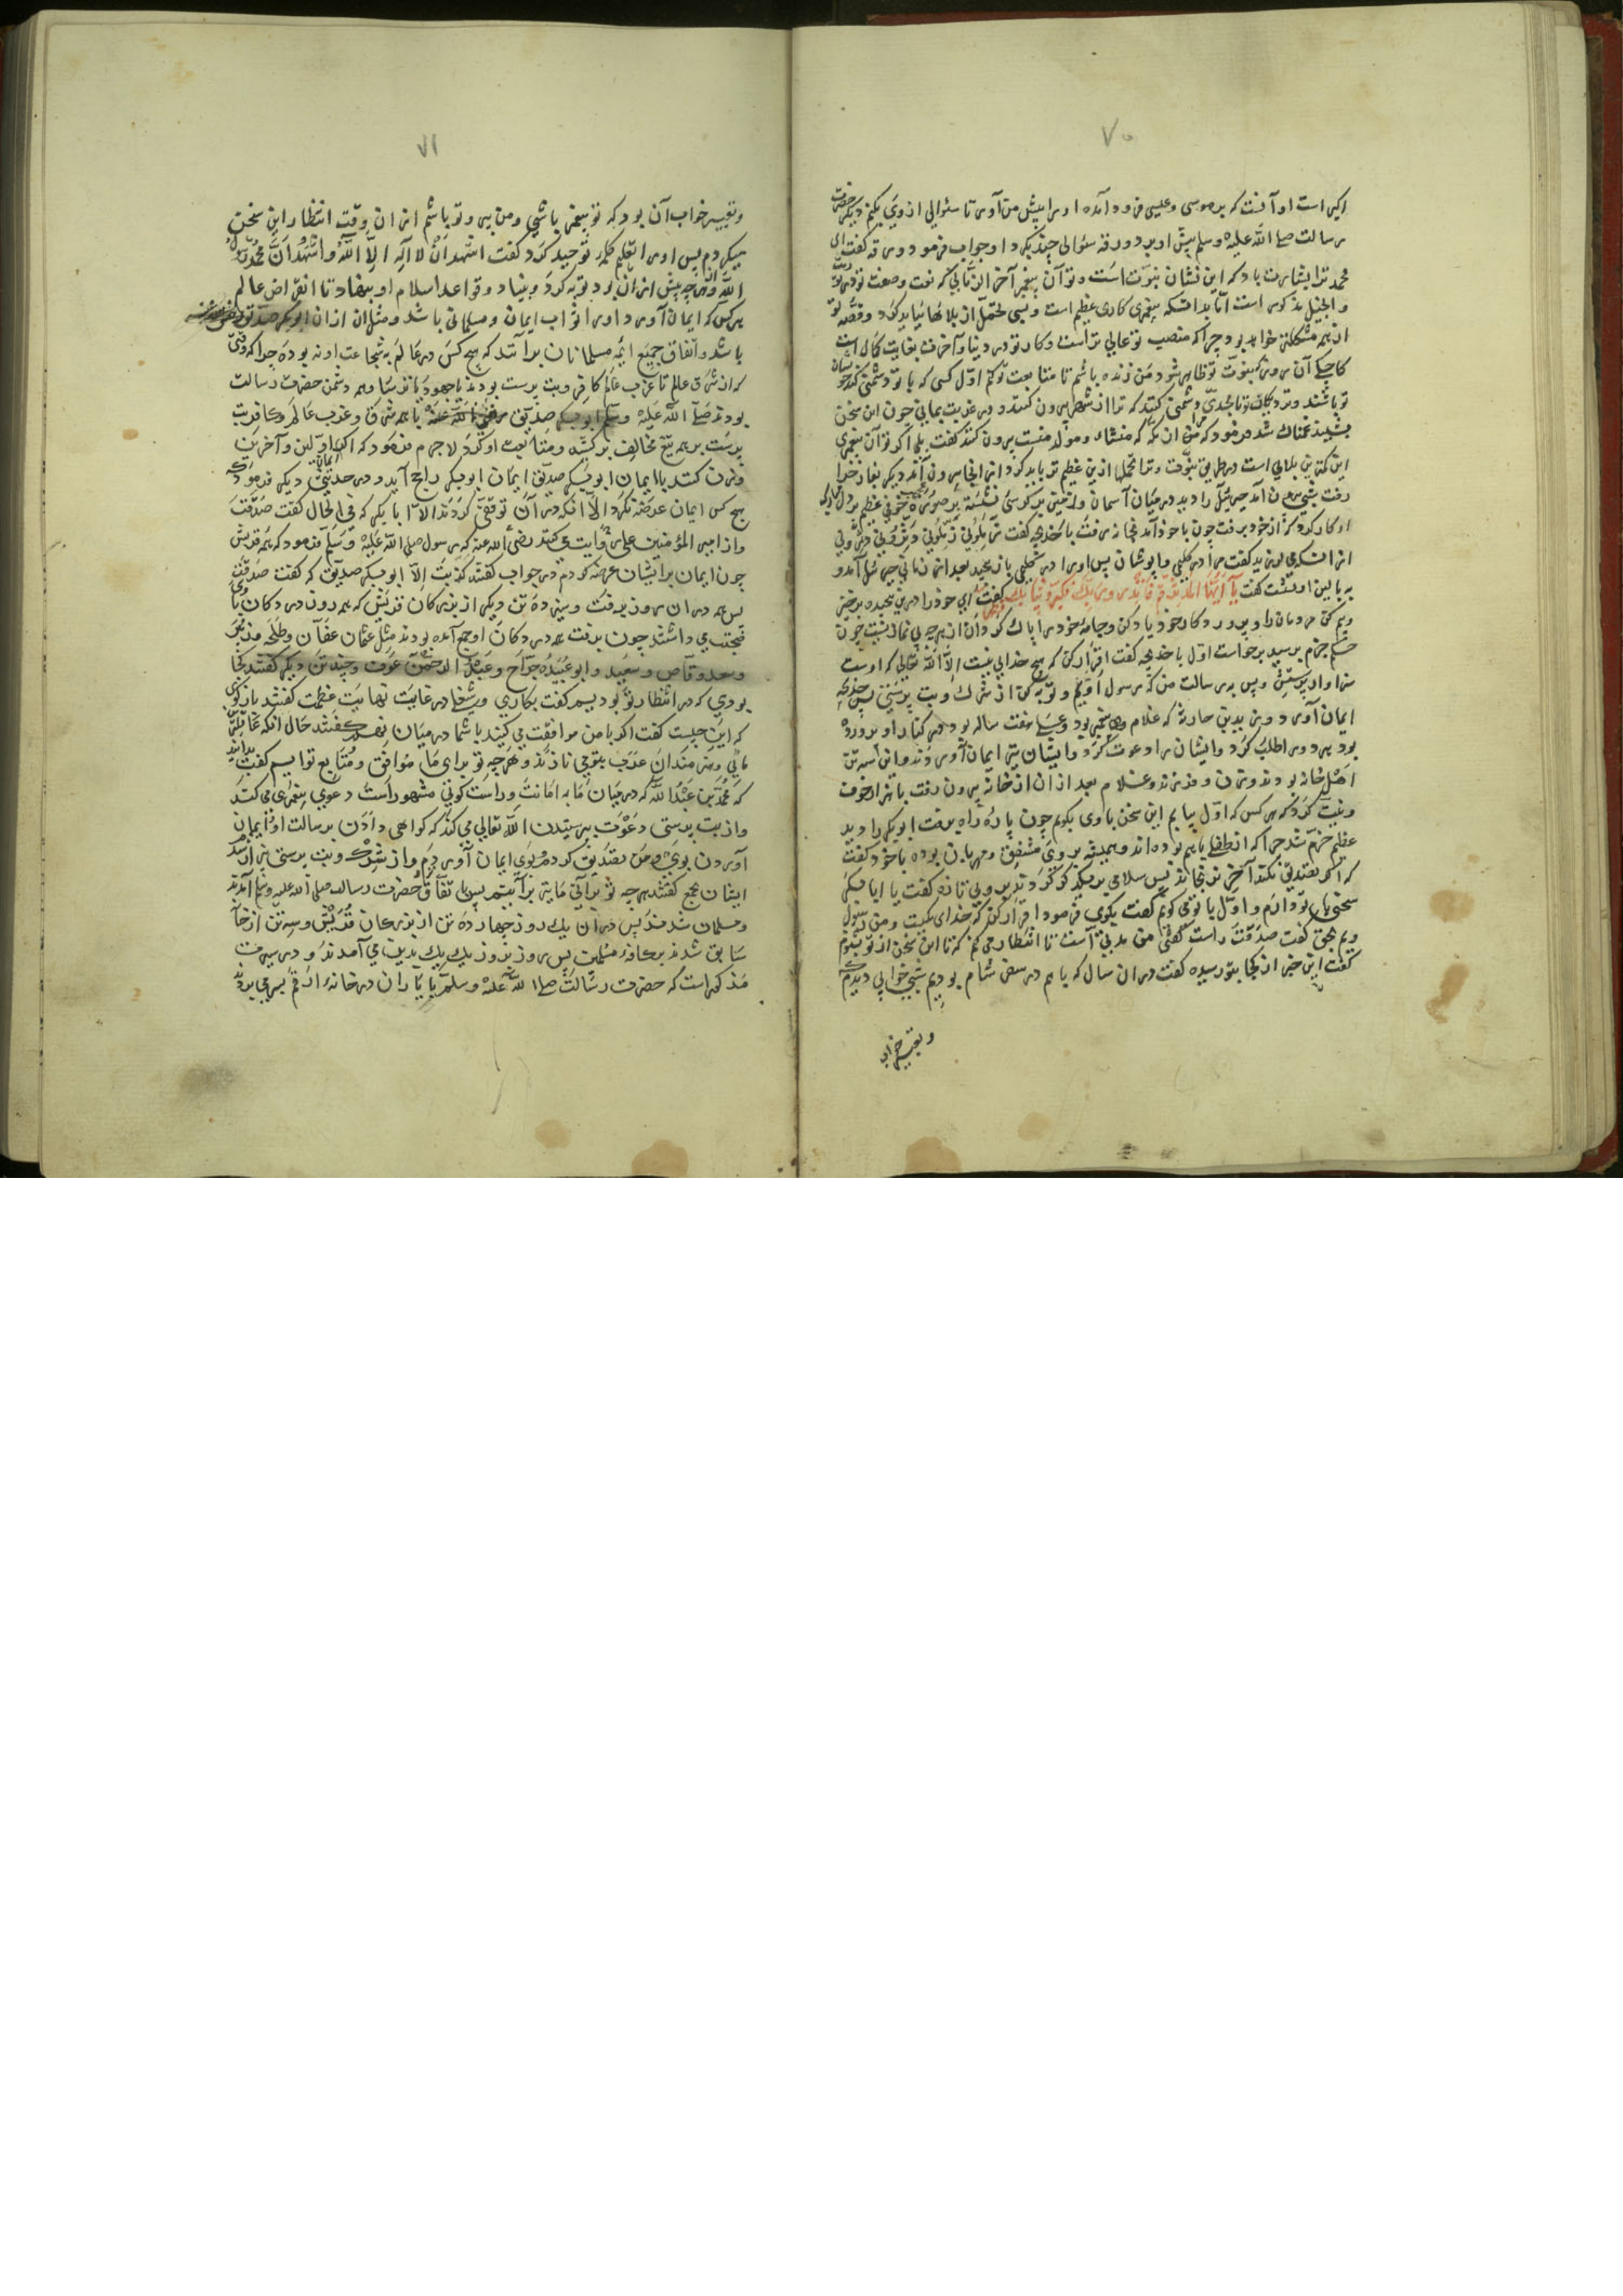 ۷۰
اکبر است او آنست که بر موسی و عیسی فرود آمده او را پیش من آور تا سئوالی از وی بکنم دیگر حضرت
رسالت صلی الله علیه وسلم پیش او برد ورقه سئوالی چند بکرد او جواب فرمود ورقه کفت ای
محمد ترا بشارت باد که این نشان نبوت است و تو آن پیغمبر آخر الزمانی که نعت و صفت تو در توریت
و انجیل مذکور است اما بدانکه پیغمبری کاری عظیم است و بسی تحمل از بلاها می باید کرد و قصه تو
از همه مشکلتر خواهد بود چرا که منصب تو عالی تر است و کار تو در دنیا و آخرت بغایت کمال است
کاجکی آن روز که نبوت تو ظاهر شود من زنده باشم تا متابعت تو کنم اول کسی که با تو دشمنی کند خویشان
تو باشند و نزدیکان تو با تو دشمنی کنند که ترا از شهر بیرون کنند و در غربت بمانی چون این سخن
بشنید غمناک شد فرمود که مرا از مکه که منشاء و مولد منست بیرون کنند کفت بلی اکر تو آن پیغمبری
این کمترین بلایی است در طریق نبوت و ترا تحملها ازین عظیم تر باید کرد از انجا بیرون آمد دیکر بغار حرا
رفت شبی بیرون آمد جبرئیل را دید در میان آسمان و زمین بر کرسی نشسته بر صورت عجیب خوفی عظیم بر دل مبارک
او کار کرد که از خود برفت چون با خود آمد بخانه رفت با خدیجه کفت زملونی زملونی دثرونی دثرونی
از ان سبب که می لرزید کفت مرا در کلیمی بپوشان پس او را در کلیمی باز پیچید بعد از زمانی جبرئیل آمد و
به بالین او بنشست کفت یا أیها المدثر قم فأنذر وربک فکبر وثیابک فطهر کفت ای خود را در کلیم پیچیده برخیز
و بیم کن مردمان را و پرورد کار خود یاد کن و جامهٔ خود را پاک کردان از هر چه بی نمازیست چون
حکم جزم برسید برخواست اول با خدیجه کفت اقرار کن که هیچ خدایی نیست الا الله تعالی که اوست
سزاوار پرستش و پس به رسالت من که رسول اویم و توبه کن از شرک و بت پرستی پس خدیجه
ایمان آورد و زید بن حارثه که غلام پیغمبر بود و علی هفت ساله بود در کنار او پرورده
بود هر دو را طلب کرد و ایشان را دعوت کرد و ایشان نیز ایمان آوردند و این سه تن
اهل خانه بودند و زن و فرزند و غلام بعد از ان از خانه بیرون رفت با نیز ادخوت
و نیت کرد که هر کس که اول بیابم این سخن با وی بکویم چون پارهٔ راه برفت ابوبکر را دید
عظیم خرم شد چرا که از طفلی با هم بوده اند و همیشه بر وی مشفق و مهربان بوده با خود کفت
که اکر تصدیق نکند آخر نرنجاند پس سلامی بر یکدیکر کردند بروی تازه کفت یا ابا بکر
سخنی با تو دارم و اول با تو می کویم کفت بکوی فرمود اقرار کن که خدای یکیست و من رسول
ویم بحق کفت صدقت راست کفتی من مدتی است تا انتظار می کنم که تا این سخن از تو بشنوم
کفت این خبر از کجا بتو رسیده کفت در ان سال که با هم در سفر شام بودیم شبی خوابی دیدم
و تعبیر خواب
۷۱
و تعبیر خواب آن بود که تو پیغمبر باشی و من پیرو تو باشم از ان وقت انتظار این سخن
میکردم پس او را تعلیم کلمهٔ توحید کرد کفت اشهد ان لا اله الا الله واشهد ان محمد رسول
الله و از هر چه پیش از ان بود توبه کرد و بنیاد و قواعد اسلام او بنهاد تا انقراض عالم
هر کس که ایمان آورد او را ثواب ایمان و مسلمانی باشد و مثل ان از ان ابوبکر صدیق رضی الله عنه
باشد و اتفاق جمیع ائمه مسلمانان برانند که هیچ کس در عالم به شجاعت او نه بوده چرا که وقتی
که از شرق عالم تا غرب عالم کافر و بت پرست بودند یا جهود یا ترسا و هم دشمن حضرت رسالت
بودند صلی الله علیه وسلم ابوبکر صدیق رضی الله عنه با همه شرق و غرب عالم و کافر بت
پرست بر همه تیغ مخالف برکشید و متابعت او کرد لاجرم فرمود که اکر ایمان اولین و آخرین
وزن کنند با ایمان ابوبکر صدیق ایمان ابوبکر راجح آید و در حدیثی دیکر فرمود که
هیچ کس ایمان عرضه نکرد الا انکه در آن توقفی کردند الا ابا بکر که فی الحال کفت صدقت
و از امیر المؤمنین علی روایت می کنند رضی الله عنه که رسول صلی الله علیه وسلم فرمود که به همه قریش
چون ایمان بر ایشان عرضه کردم در جواب کفتند کذبت الا ابوبکر صدیق که کفت صدقت
پس هم در ان روز برفت و سیزده تن دیکر از بزرکان قریش که هر روز در دکان با وی
صحبت می داشتند چون برفت همه در دکان او جمع آمده بودند مثل عثمان عفان و طلحه و زبیر
و سعد وقاص و سعید و ابو عبیدهٔ جراح و عبد الرحمن عوف و چند تن دیکر کفتند کجا
بودی که در انتظار تو بودیم کفت بکاری و شغلی در غایت نهایت عظمت کفتند باز کوی
که این چیست کفت اکر با من موافقت می کنید با شما در میان نهم کفتند حال انکه
مایی و هنرمندان عرب بتو می نازند و هر چه تو برای ما موافق و متابع توایم کفت بدانید
که محمد بن عبد الله که در میان ما به امانت و راست کویی مشهور است دعوی پیغمبری می کند
و از بت پرستی دعوت پرستیدن الله تعالی می کند که کواهی دادن برسالت او و ایمان
آوردن بوی و من تصدیق کردم و بوی ایمان آوردم و از شرک و بت پرستی بیزار شدم
ایشان جمع کفتند هر چه تو برآنی ما نیز برآنیم پس باتفاق حضرت رسالت صلی الله علیه وسلم آمدند
و مسلمان شدند پس در آن یک روز چهارده تن از بزرکان قریش و سه تن از خانه
سابق شدند بر کافهٔ مسلمین پس روز بروز یک یک بدین می آمدند و در سیرت
مذکور است که حضرت رسالت صلی الله علیه وسلم با یاران در خانهٔ ارقم بسر می برد